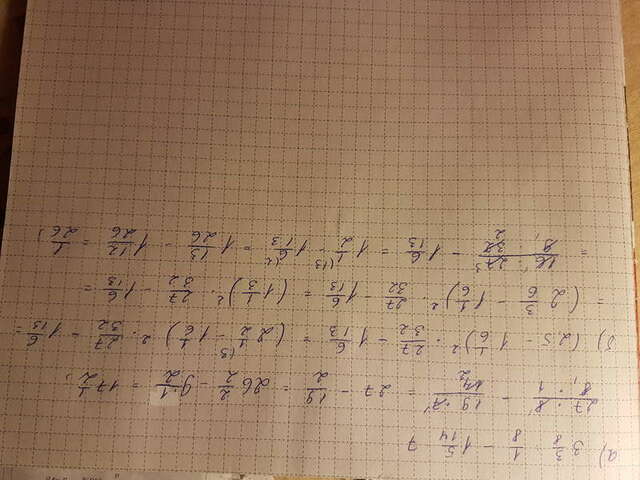 а) 3 3/8 : 1/8 - 1 5/14 · 7
27 · 8/8 · 1 - 19 · 7/14 2 = 27 - 19/2 = 26 2/2 - 9 1/2 = 17 1/2;
б) (2,5 - 1 1/6)² · 27/32 - 1 6/13 = (2 1/2 (3 - 1 1/6)² · 27/32 - 1 6/13 =
= (2 3/6 - 1 1/6)² · 27/32 - 1 6/13 = (1 1/3)² · 27/32 - 1 6/13 =
= 16 · 27 3/9 · 32 2 - 1 6/13 = 1 1/2 (13 - 1 6/13 (2 = 1 13/26 - 1 12/26 = 1/26;